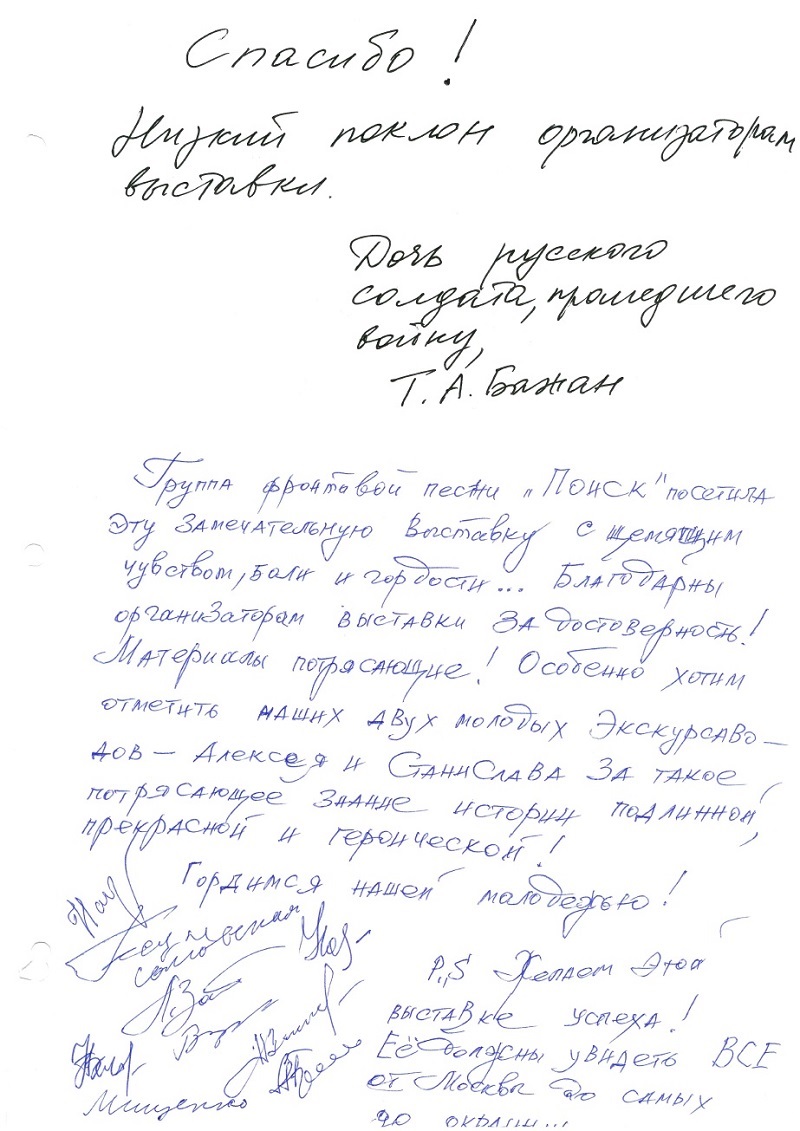 Спасибо!
Низкий поклон организаторам
выставки.
Дочь русского
солдата, прошедшего
войну,
Т. А. Бажан
Группа фронтовой песни „Поиск" посетила
эту замечательную выставку с щемящим
чувством, боли и гордости... Благодарны
организаторам выставки за достоверность!
Материалы потрясающие! Особенно хотим
отметить наших двух молодых экскурсаво-
дов – Алексея и Станислава за такое
потрясающее знание истории подлинной,
прекрасной и героической!
Гордимся нашей молодежью!
P.S Желаем этой
выставке успеха!
Её должны увидеть ВСЕ
от Москвы до самых
до окраин...
Мищенко